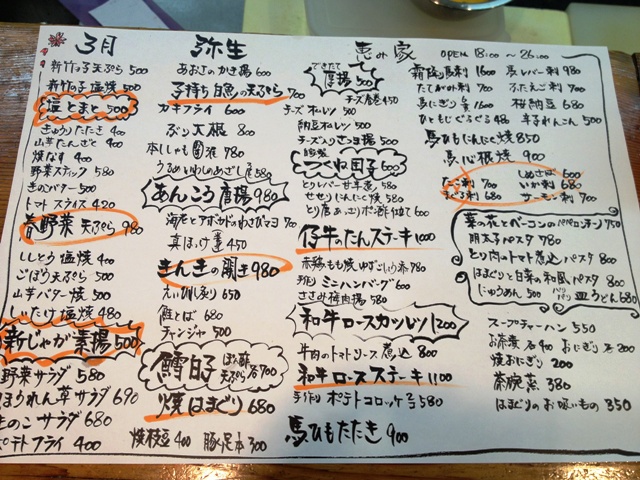 3月
新竹の子天ぷら 500
新竹の子塩焼 500
塩とまと 500
きゅうりたたき 400
山芋たんざく 400
焼なす 400
野菜スティック 580
きのこバター 500
トマトスライス 420
春野菜天ぷら 980
ししとう塩焼 400
ごぼう天ぷら 500
山芋バター焼 500
しいたけ塩焼 480
新じゃが素揚 500
野菜サラダ 580
ほうれん草サラダ 690
きのこサラダ 680
ポテトフライ 400
弥生
あおさのかき揚 600
子持ち白魚の天ぷら 700
カキフライ 600
ぶり大根 800
本ししゃも 780
うるめいわし 580
あんこう唐揚 980
海老とアボカドのわさびマヨ 700
真ほっけ 450
きんきの開き 980
えいひれ炙り 650
鮭とば 680
チャンジャ 500
鱈白子 ぽん酢 天ぷら 各700
焼はまぐり 680
焼枝豆 400 豚足本 300
恵み家 OPEN 18:00～26:00
できたて厚揚 500
チーズ春巻 450
チーズオムレツ 500
納豆オムレツ 500
チーズ入りさつま揚 500
自家製つくね団子
とりレバー甘辛煮 580
せせりにんにく焼 580
とり唐あっさりポン酢仕立て 600
仔牛のたんステーキ 1000
赤鶏もも焼ゆずこしょう添 780
手作りミニハンバーグ 600
ささみ梅肉揚 580
和牛ロースカツレツ 1200
牛肉のトマトソース煮込 800
和牛ロースステーキ 1100
手作りポテトコロッケ 580
馬ひもたたき 900
霜降り馬刺 1600 馬レバー刺 980
たてがみ刺 700 ふたえご刺 700
馬にぎり 1600 桜納豆 680
ひともじぐるぐる 480 辛子れんこん 500
馬ひもにんにく焼 850
馬心根焼 900
しめさば 600
たこ刺 700 いか刺 680
まぐろ刺 680 サーモン刺 700
菜の花とベーコンのペペロンチーノ 750
明太子パスタ 780
とり肉のトマト煮込パスタ 800
はまぐりと白菜の和風パスタ 800
にゅうめん 500 パリパリ皿うどん 680
スープチャーハン 550
お茶漬 各400 おにぎり 各200
焼おにぎり 200
茶碗蒸 380
はまぐりのお吸いもの 350